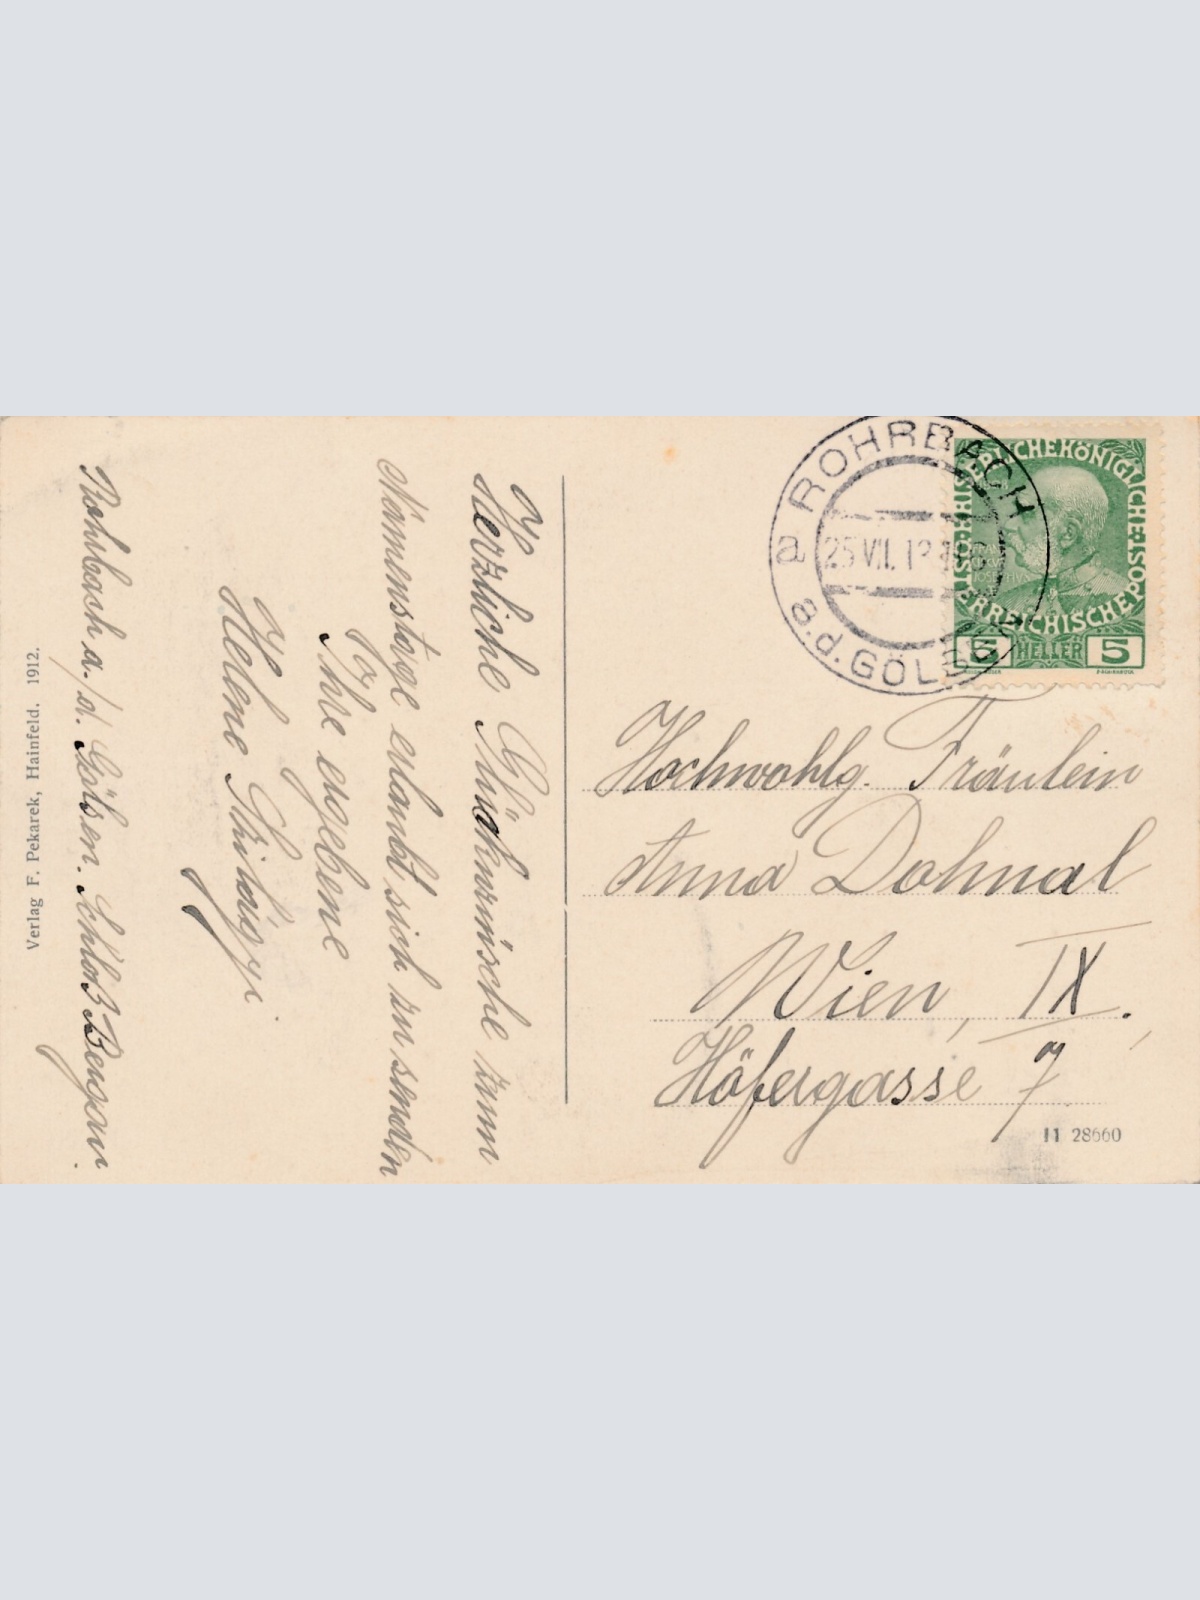 Herzliche Glückwünsche zum
Namenstage erlaubt sich zu senden
Ihre ergebene
Helene
Rohrbach a./d. Gölsen. Schloß Bergau.
Verlag F. Pekarek, Hainfeld. 1912.
a ROHRBACH
a.d. GÖLSEN
25 VII.
KAISERLICHEKÖNIGLICHE
ÖSTERREICHISCHE POST
5 HELLER 5
Hochwohlg. Fräulein
Anna Dohnal
Wien, IX.
Höfergasse 7
11 28660